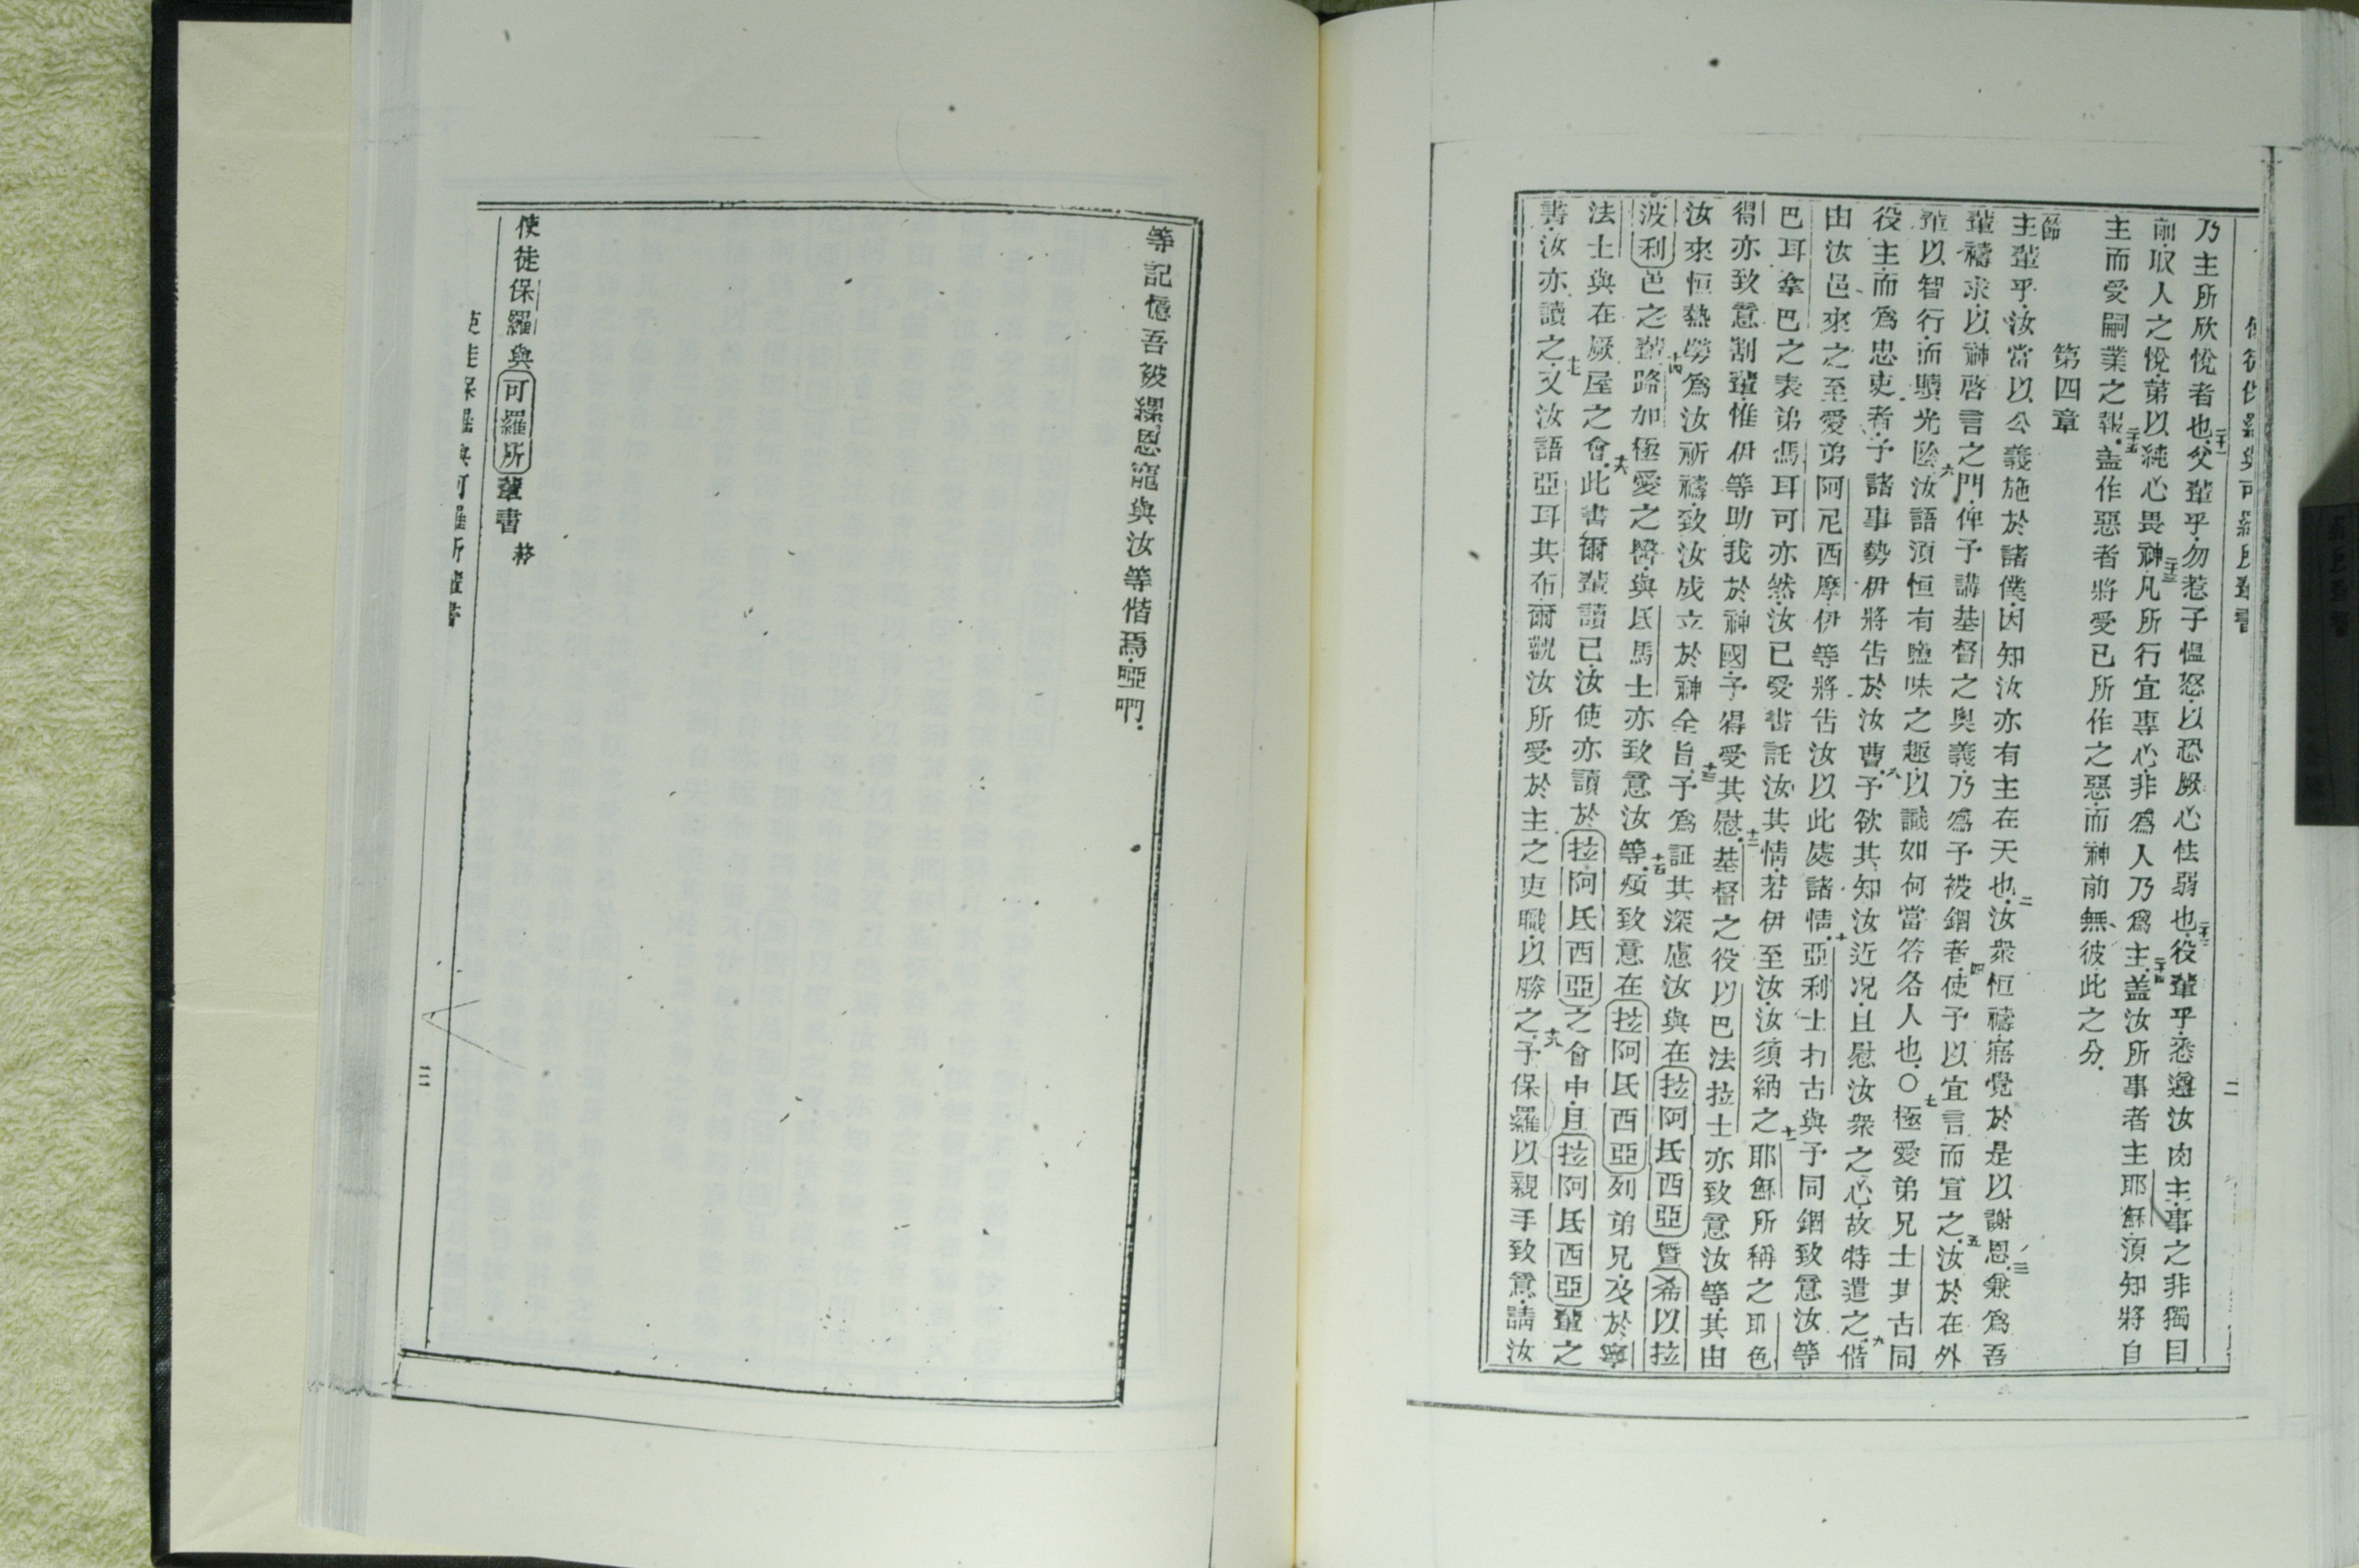 使徒保羅與可羅所輩書
二
乃主所欣悅者也父輩乎勿惹子慍怒以恐厥心怯弱也役輩乎悉遵汝肉主事之非獨目
前取人之悅第以純心畏神凡所行宜專心非爲人乃爲主蓋汝所事者主耶穌須知將自
主而受嗣業之報蓋作惡者將受已所作之惡而神前無彼此之分
第四章
節
主輩乎汝當以公義施於諸僕因知汝亦有主在天也二汝衆恒禱寤覺於是以謝恩三兼爲吾
輩禱求以神啓言之門俾予講基督之奧義乃爲予被錮者四使予以宜言而宣之五汝於在外
輩以智行而贖光陰六汝語須恒有鹽味之趣以識如何當答各人也〇七極愛弟兄士其古同
役主而爲忠吏者予諸事勢伊將告於汝曹八予欲其知汝近況且慰汝衆之心故特遣之九偕
由汝邑來之至愛弟阿尼西摩伊等將告汝以此處諸情十亞利士打古與予同錮致意汝等
巴耳拿巴之表弟馮耳可亦然汝已受書託汝其情若伊至汝汝須納之十一耶穌所稱之耶色
得亦致意割輩惟伊等助我於神國予得受其慰十二基督之役以巴法拉士亦致意汝等其由
汝來恒熱勞爲汝祈禱致汝成立於神全旨十三予爲証其深慮汝與在拉阿氐西亞暨希以拉
波利邑之輩十四路加極愛之醫與氐馬士亦致意汝等十五煩致意在拉阿氐西亞列弟兄及於寧
法士與在厥屋之會十六此書爾輩讀已汝使亦讀於拉阿氐西亞之會中且拉阿氐西亞輩之
書汝亦讀之十七又汝語亞耳其布爾觀汝所受於主之吏職以勝之十八予保羅以親手致意請汝
等記憶吾被縲恩寵與汝等偕焉啞啊
使徒保羅與可羅所輩書 終
使徒保羅與可羅所輩書
三